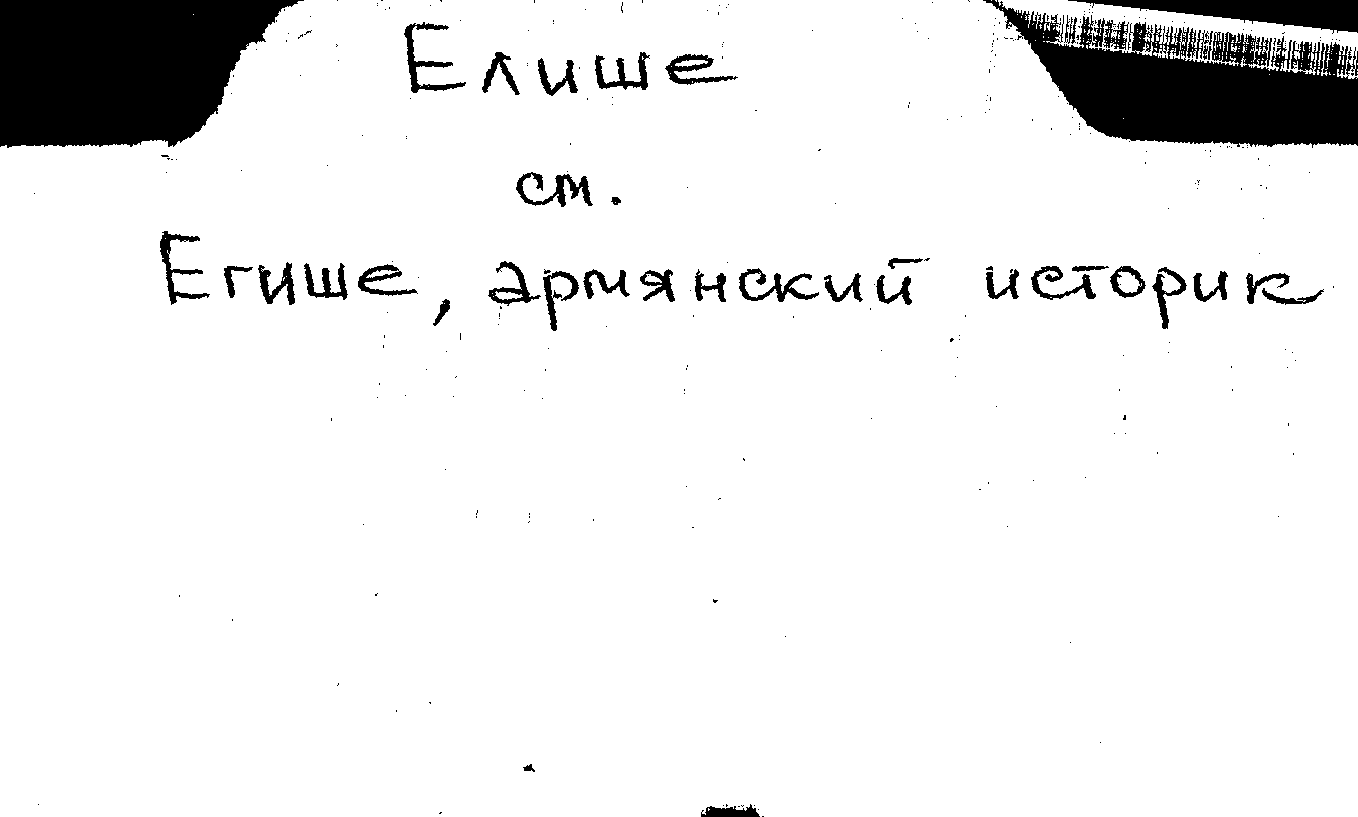 Елише
см.
Егише, армянский историк